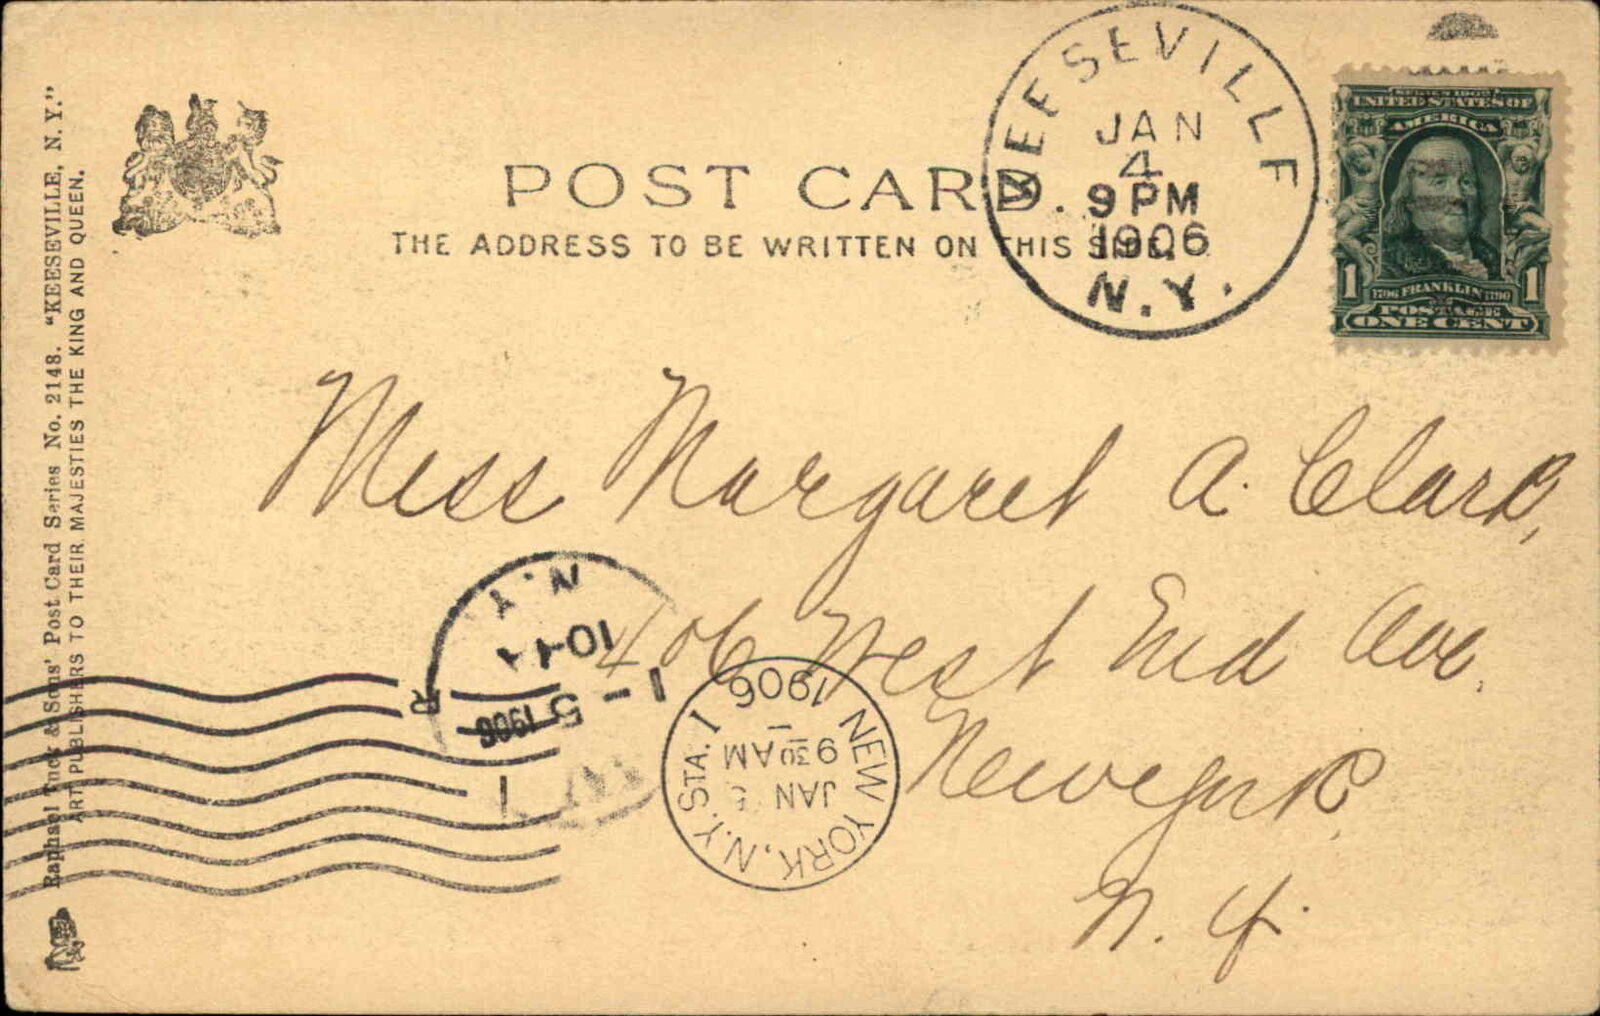 Raphael Tuck & Sons' Post Card Series No. 2148. "KEESEVILLE, N. Y."
ART PUBLISHERS TO THEIR MAJESTIES THE KING AND QUEEN.
POST CARD.
THE ADDRESS TO BE WRITTEN ON THIS SIDE.
KEESEVILLE
JAN
4
9 PM
1906
N.Y.
SERIES 1902
UNITED STATES OF
AMERICA
1 1706 FRANKLIN 1790 1
POSTAGE
ONE CENT
Miss Margaret A. Clark,
406 West End Ave.
New York,
N. Y.
N.Y.
10-A
1-5
1906
R
1
NEW YORK, N.Y. STA. I
JAN 5
9 30 AM
1906